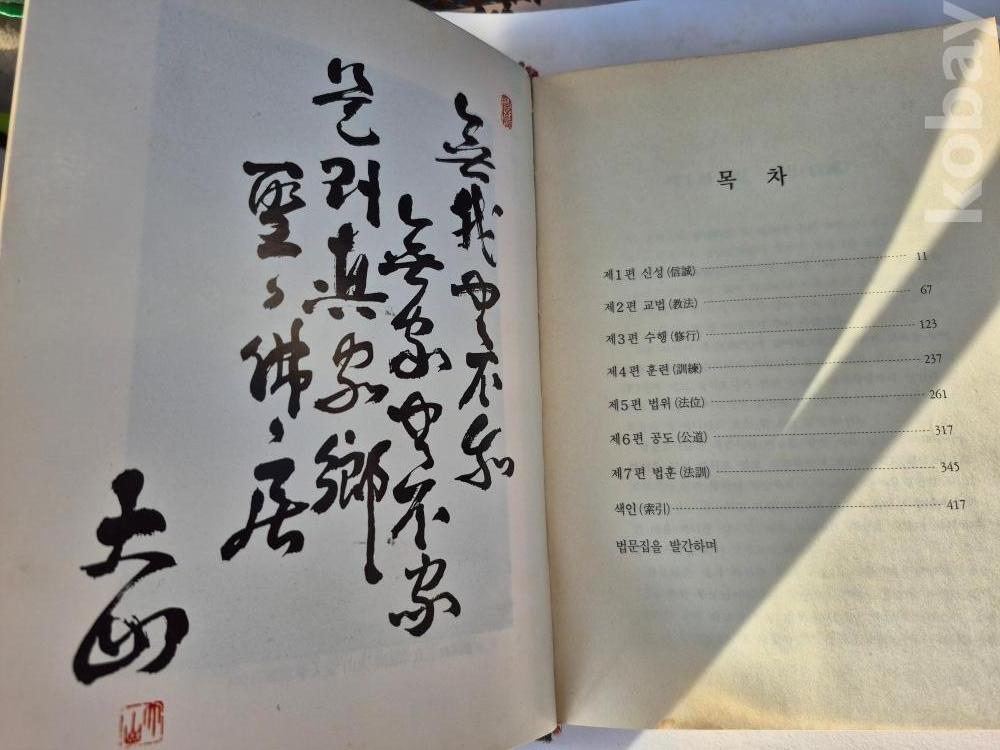 無我無不我
無家無不家
是則眞家鄕
聖々佛々居
大山
大山
목 차
제1편 신성(信誠) 11
제2편 교법(敎法) 67
제3편 수행(修行) 123
제4편 훈련(訓練) 237
제5편 법위(法位) 261
제6편 공도(公道) 317
제7편 법훈(法訓) 345
색인(索引) 417
법문집을 발간하며
kobay